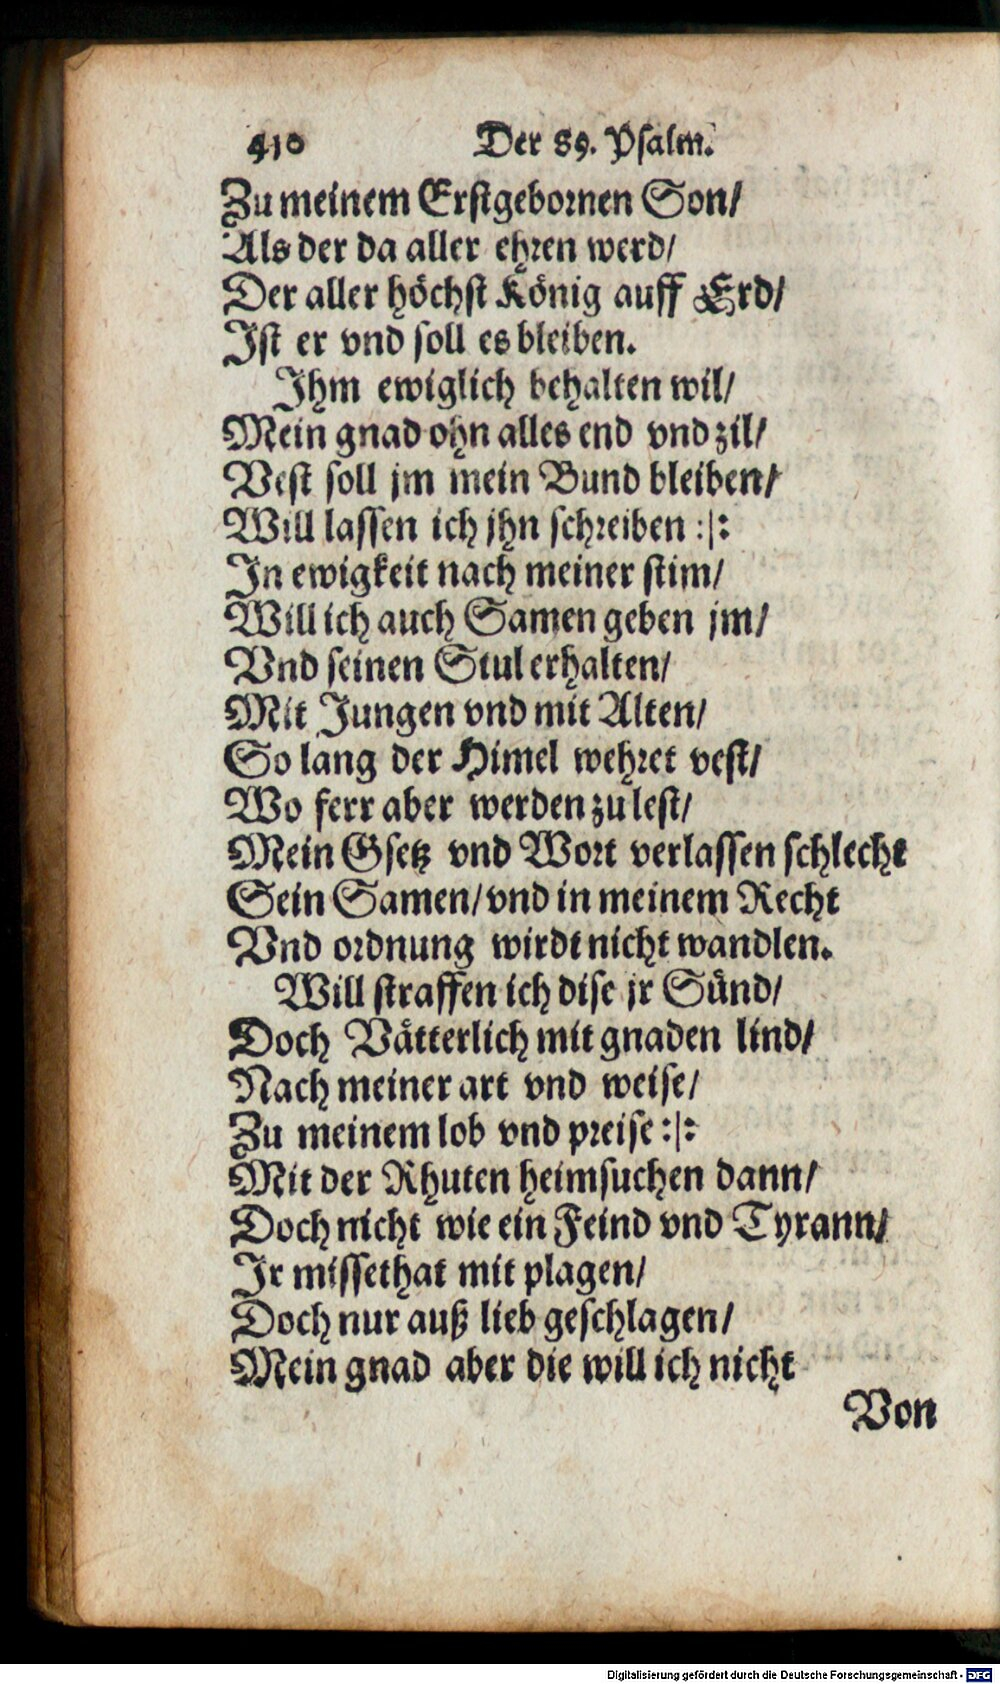 410 Der 89. Psalm.
Zu meinem Erstgebornen Son/
Als der da aller ehren werd/
Der aller höchst König auff Erd/
Ist er vnd soll es bleiben.
Ihm ewiglich behalten wil/
Mein gnad ohn alles end vnd zil/
Vest soll jm mein Bund bleiben/
Will lassen ich jhn schreiben :|:
In ewigkeit nach meiner stim/
Will ich auch Samen geben jm/
Vnd seinen Stul erhalten/
Mit Jungen vnd mit Alten/
So lang der Himel wehret vest/
Wo ferr aber werden zu lest/
Mein Gsetz vnd Wort verlassen schlecht
Sein Samen/ vnd in meinem Recht
Vnd ordnung wirdt nicht wandlen.
Will straffen ich dise jr Sünd/
Doch Vätterlich mit gnaden lind/
Nach meiner art vnd weise/
Zu meinem lob vnd preise :|:
Mit der Rhuten heimsuchen dann/
Doch nicht wie ein Feind vnd Tyrann/
Ir missethat mit plagen/
Doch nur auß lieb geschlagen/
Mein gnad aber die will ich nicht
Von
Digitalisierung gefördert durch die Deutsche Forschungsgemeinschaft - DFG